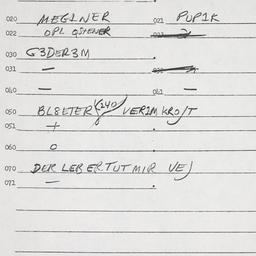 020 MEGINER 021 PUPIK
022 OPL 023
030 G3DER3M
031 —
040 — 041 —
050 BLSETER (240) VERIMKROST
051 +
060 O
070 DER LEBER TUT MIR VEJ
071 —